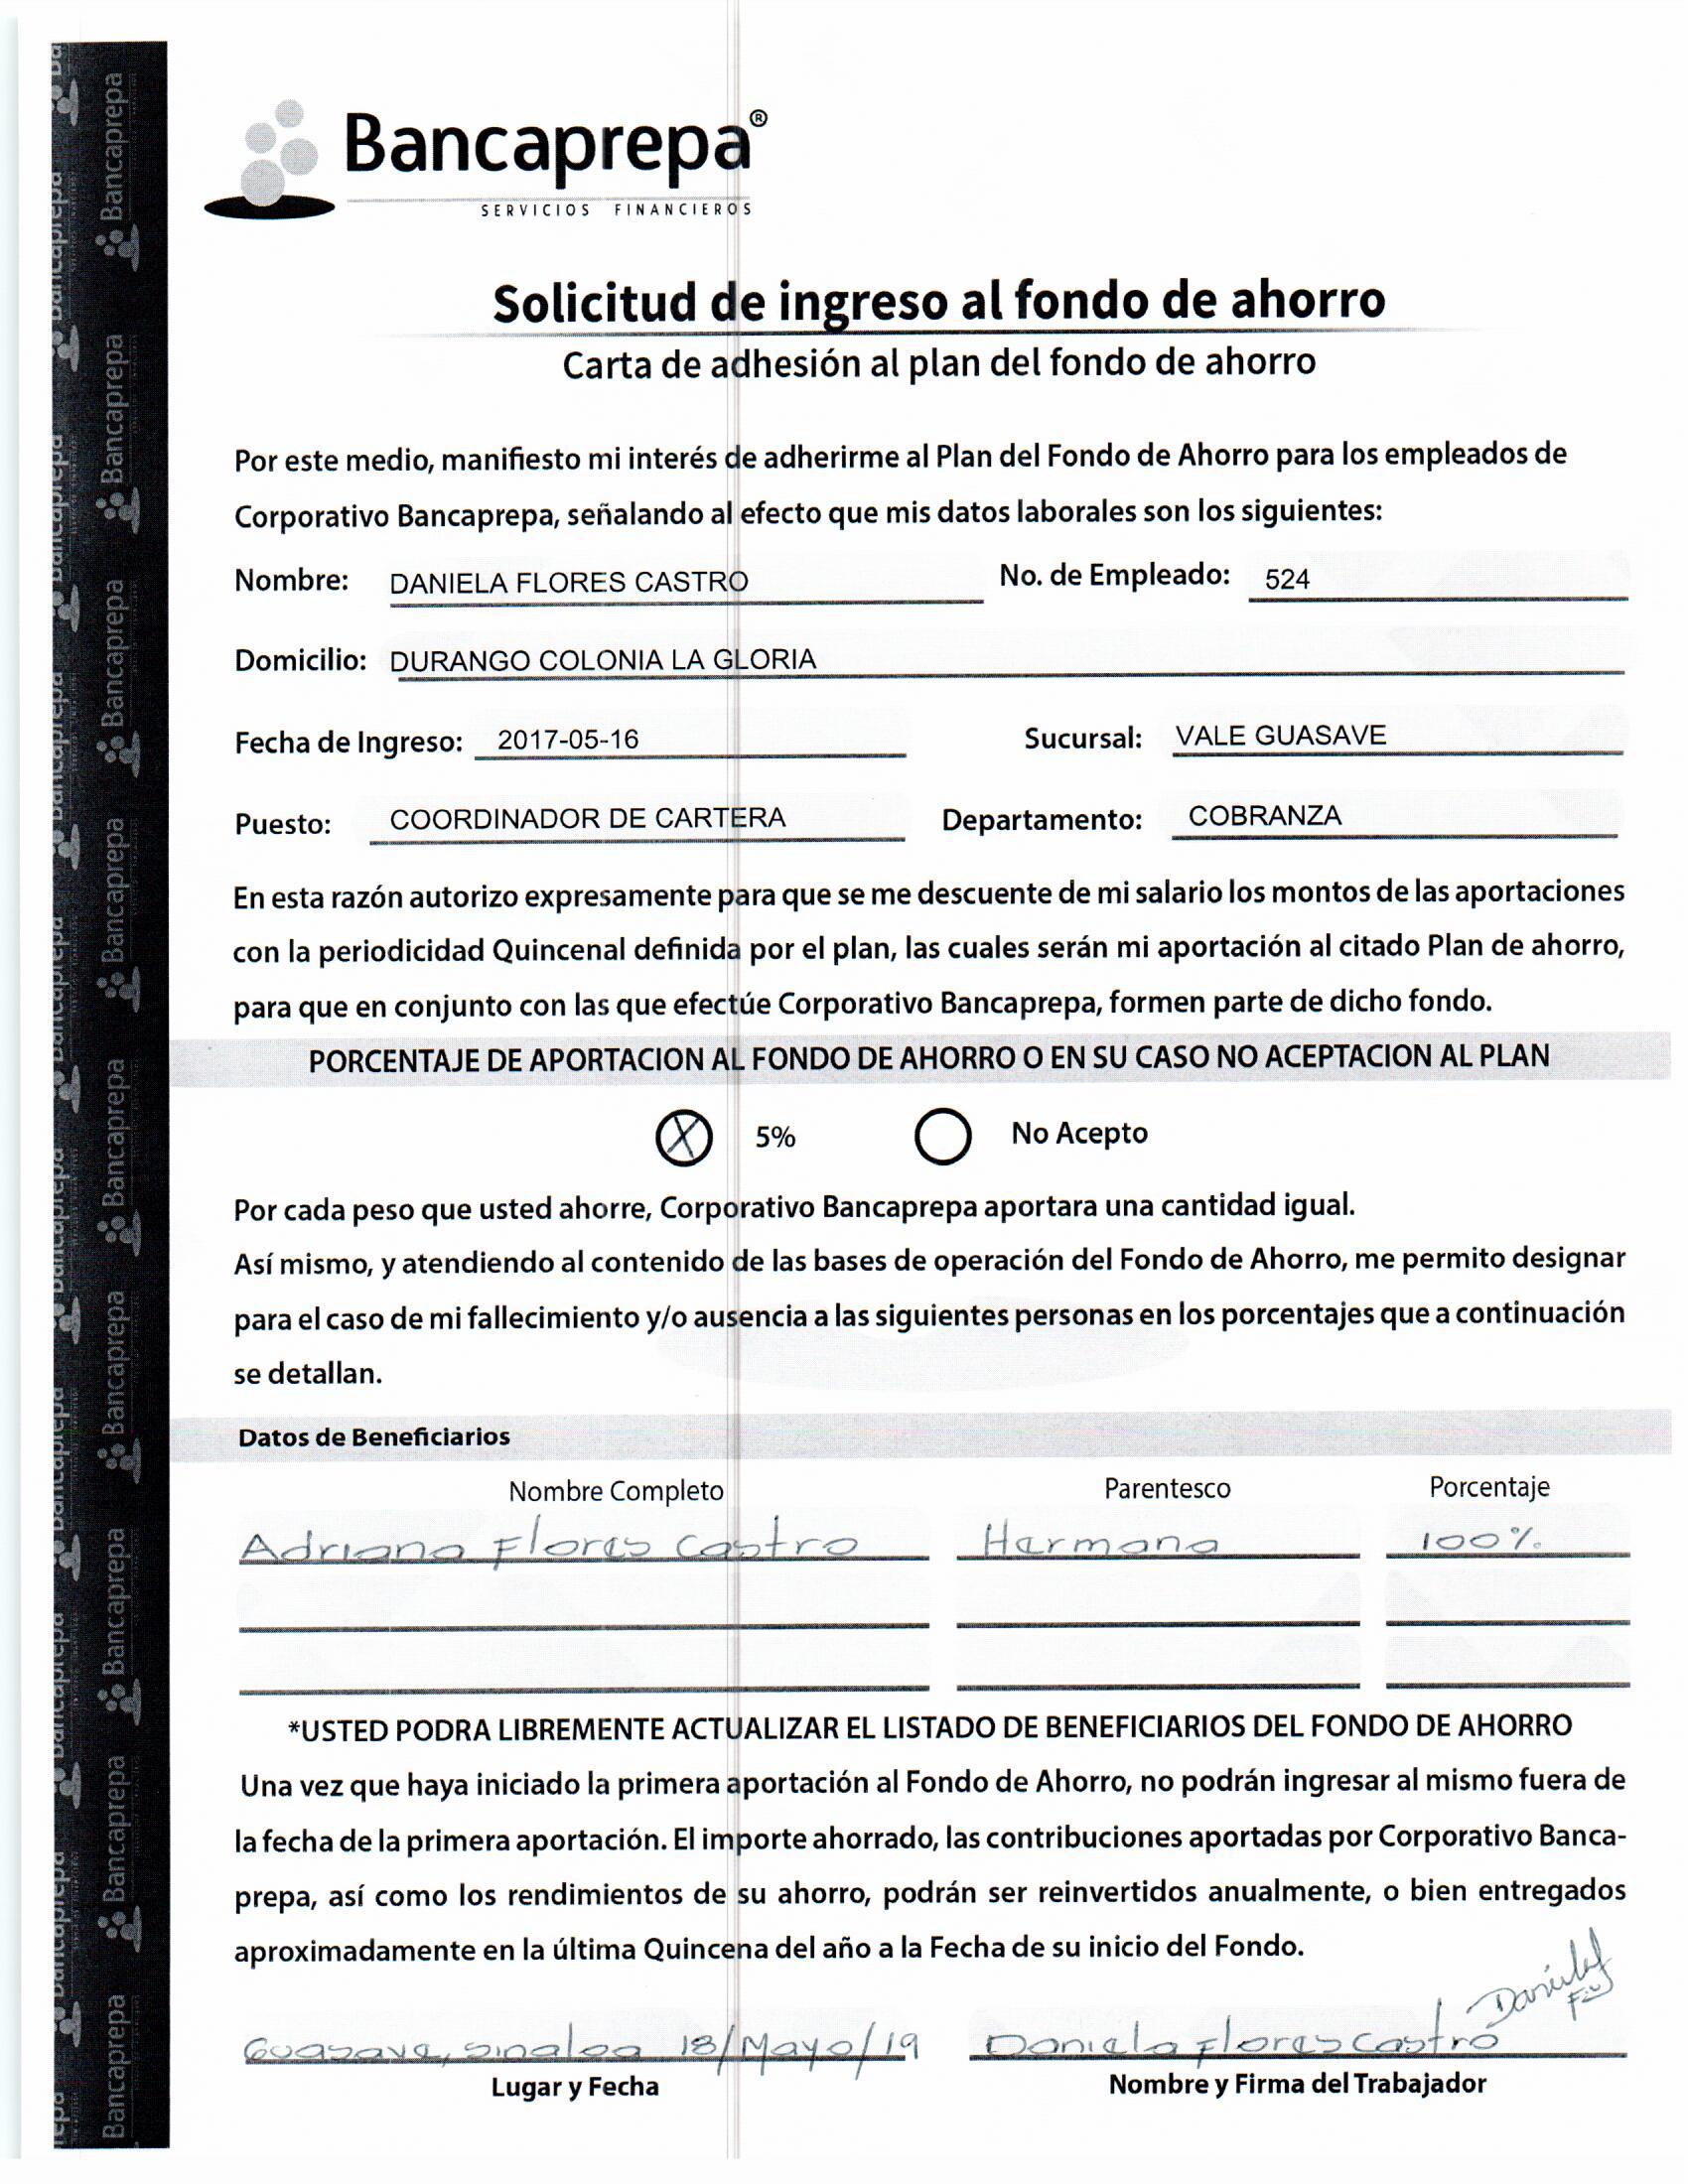 Bancaprepa®
SERVICIOS FINANCIEROS
Solicitud de ingreso al fondo de ahorro
Carta de adhesión al plan del fondo de ahorro
Por este medio, manifiesto mi interés de adherirme al Plan del Fondo de Ahorro para los empleados de
Corporativo Bancaprepa, señalando al efecto que mis datos laborales son los siguientes:
Nombre: DANIELA FLORES CASTRO No. de Empleado: 524
Domicilio: DURANGO COLONIA LA GLORIA
Fecha de Ingreso: 2017-05-16 Sucursal: VALE GUASAVE
Puesto: COORDINADOR DE CARTERA Departamento: COBRANZA
En esta razón autorizo expresamente para que se me descuente de mi salario los montos de las aportaciones
con la periodicidad Quincenal definida por el plan, las cuales serán mi aportación al citado Plan de ahorro,
para que en conjunto con las que efectúe Corporativo Bancaprepa, formen parte de dicho fondo.
PORCENTAJE DE APORTACION AL FONDO DE AHORRO O EN SU CASO NO ACEPTACION AL PLAN
X 5% No Acepto
Por cada peso que usted ahorre, Corporativo Bancaprepa aportara una cantidad igual.
Así mismo, y atendiendo al contenido de las bases de operación del Fondo de Ahorro, me permito designar
para el caso de mi fallecimiento y/o ausencia a las siguientes personas en los porcentajes que a continuación
se detallan.
Datos de Beneficiarios
Nombre Completo Parentesco Porcentaje
Adriana Flores Castro Hermana 100%
*USTED PODRA LIBREMENTE ACTUALIZAR EL LISTADO DE BENEFICIARIOS DEL FONDO DE AHORRO
Una vez que haya iniciado la primera aportación al Fondo de Ahorro, no podrán ingresar al mismo fuera de
la fecha de la primera aportación. El importe ahorrado, las contribuciones aportadas por Corporativo Banca-
prepa, así como los rendimientos de su ahorro, podrán ser reinvertidos anualmente, o bien entregados
aproximadamente en la última Quincena del año a la Fecha de su inicio del Fondo.
Guasave, Sinaloa 18/Mayo/19 Daniela Flores Castro
Lugar y Fecha Nombre y Firma del Trabajador